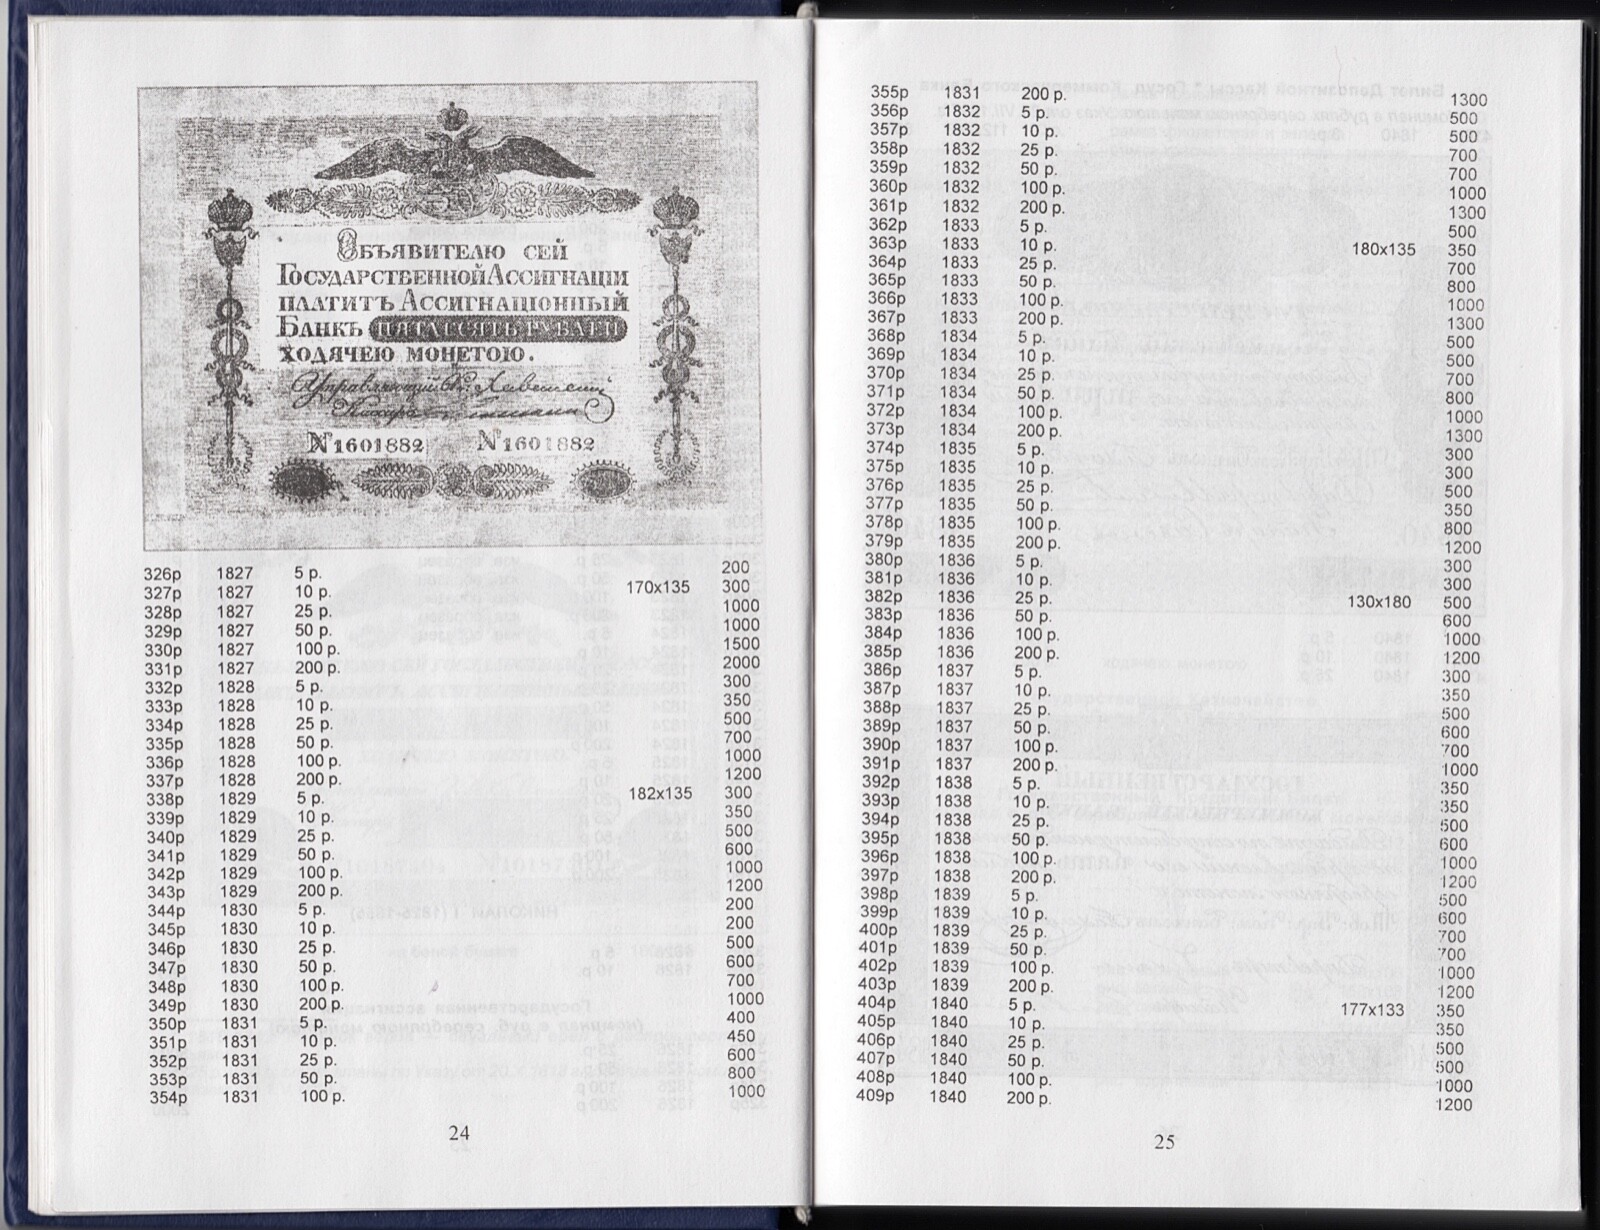 Объявителю сей
Государственной Ассигнацiи
платитъ Ассигнацiонный
Банкъ пятдесятъ рублей
ходячею монетою.
Управляющий
№1601882 №1601882
326р 1827 5 р. 200
327р 1827 10 р. 170х135 300
328р 1827 25 р. 1000
329р 1827 50 р. 1000
330р 1827 100 р. 1500
331р 1827 200 р. 2000
332р 1828 5 р. 300
333р 1828 10 р. 350
334р 1828 25 р. 500
335р 1828 50 р. 700
336р 1828 100 р. 1000
337р 1828 200 р. 1200
338р 1829 5 р. 182х135 300
339р 1829 10 р. 350
340р 1829 25 р. 500
341р 1829 50 р. 600
342р 1829 100 р. 1000
343р 1829 200 р. 1200
344р 1830 5 р. 200
345р 1830 10 р. 200
346р 1830 25 р. 500
347р 1830 50 р. 600
348р 1830 100 р. 700
349р 1830 200 р. 1000
350р 1831 5 р. 400
351р 1831 10 р. 450
352р 1831 25 р. 600
353р 1831 50 р. 800
354р 1831 100 р. 1000
24
355р 1831 200 р. 1300
356р 1832 5 р. 500
357р 1832 10 р. 500
358р 1832 25 р. 700
359р 1832 50 р. 700
360р 1832 100 р. 1000
361р 1832 200 р. 1300
362р 1833 5 р. 500
363р 1833 10 р. 180х135 350
364р 1833 25 р. 700
365р 1833 50 р. 800
366р 1833 100 р. 1000
367р 1833 200 р. 1300
368р 1834 5 р. 500
369р 1834 10 р. 500
370р 1834 25 р. 700
371р 1834 50 р. 800
372р 1834 100 р. 1000
373р 1834 200 р. 1300
374р 1835 5 р. 300
375р 1835 10 р. 300
376р 1835 25 р. 500
377р 1835 50 р. 350
378р 1835 100 р. 800
379р 1835 200 р. 1200
380р 1836 5 р. 300
381р 1836 10 р. 300
382р 1836 25 р. 130х180 500
383р 1836 50 р. 600
384р 1836 100 р. 1000
385р 1836 200 р. 1200
386р 1837 5 р. 300
387р 1837 10 р. 350
388р 1837 25 р. 500
389р 1837 50 р. 600
390р 1837 100 р. 700
391р 1837 200 р. 1000
392р 1838 5 р. 350
393р 1838 10 р. 350
394р 1838 25 р. 500
395р 1838 50 р. 600
396р 1838 100 р. 1000
397р 1838 200 р. 1200
398р 1839 5 р. 500
399р 1839 10 р. 600
400р 1839 25 р. 700
401р 1839 50 р. 700
402р 1839 100 р. 1000
403р 1839 200 р. 1200
404р 1840 5 р. 177х133 350
405р 1840 10 р. 350
406р 1840 25 р. 500
407р 1840 50 р. 500
408р 1840 100 р. 1000
409р 1840 200 р. 1200
25